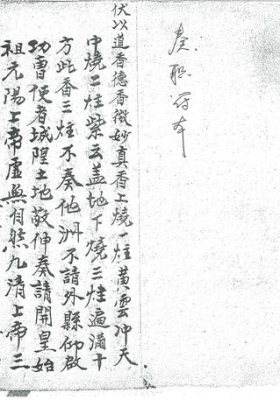 奏職符本
伏以道香德香微妙真香上燒一炷黃雲冲天
中燒二炷紫云盖地下燒三炷遍滿十
方此香三炷不奏他洲不請外縣仰啟
功曹使者城隍土地敬伸奏請開皇始
祖元陽上帝虛無自然九清上帝三